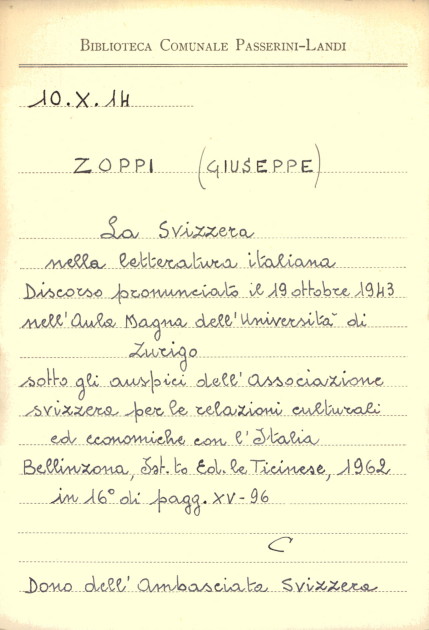 BIBLIOTECA COMUNALE PASSERINI-LANDI
10.X.14
ZOPPI (GIUSEPPE)
La Svizzera
nella letteratura italiana
Discorso pronunciato il 19 ottobre 1943
nell'Aula Magna dell'Università di
Zurigo
sotto gli auspici dell'Associazione
svizzera per le relazioni culturali
ed economiche con l'Italia
Bellinzona, Ist.to Ed.le Ticinese, 1962
in 16° di pagg. XV-96
C
Dono dell'Ambasciata Svizzera